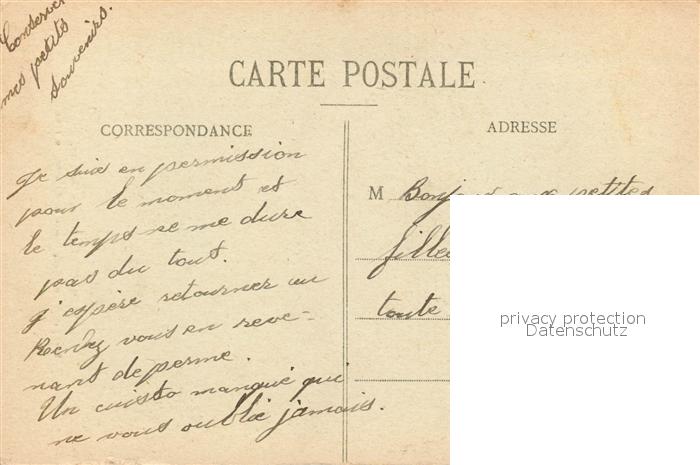 Conserver
mes petits
souvenirs.
CARTE POSTALE
CORRESPONDANCE
Je suis en permission
pour le moment et
le temps ne me dure
pas du tout.
J'espère retourner au
Rendez vous en reve-
nant de perme.
Un cuisto manqué qui
ne vous oublie jamais.
ADRESSE
M Bonjour aux petites
filles
toute
privacy protection
Datenschutz